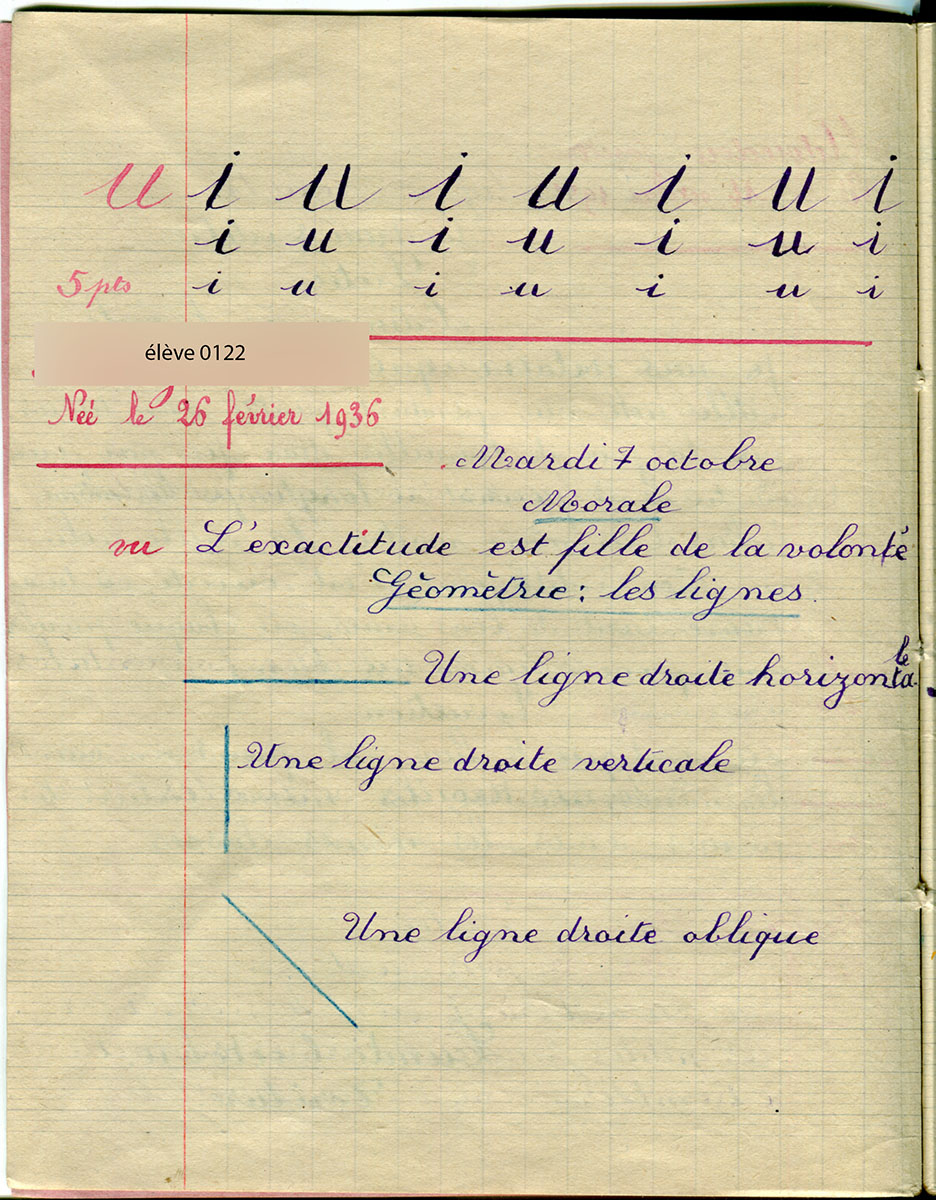 u i u i u i u i
i u i u i u i
5 pts i u i u i u i
élève 0122
Née le 26 février 1936
Mardi 7 octobre
Morale
vu L'exactitude est fille de la volonté
Géométrie : les lignes.
Une ligne droite horizonta
le
Une ligne droite verticale
Une ligne droite oblique